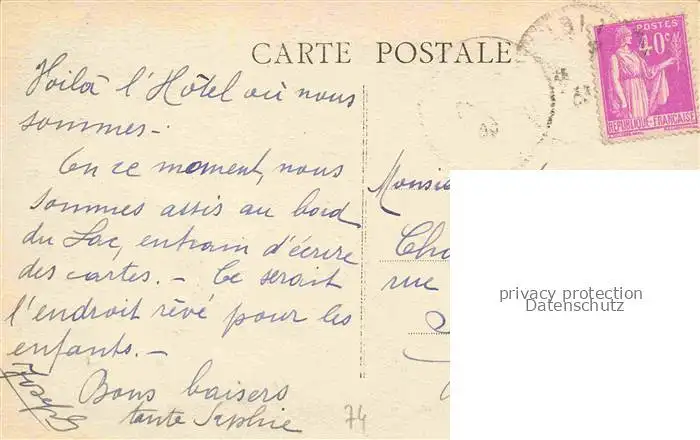 CARTE POSTALE
POSTES
40c
REPUBLIQUE-FRANÇAISE
Voilà l'Hôtel où nous
sommes.-
En ce moment, nous
sommes assis au bord
du Lac, entrain d'écrire
des cartes. - Ce serait
l'endroit rêvé pour les
enfants. -
Bons baisers
tante Sophie
Joseph
74
Monsie
Cha
rue
privacy protection
Datenschutz